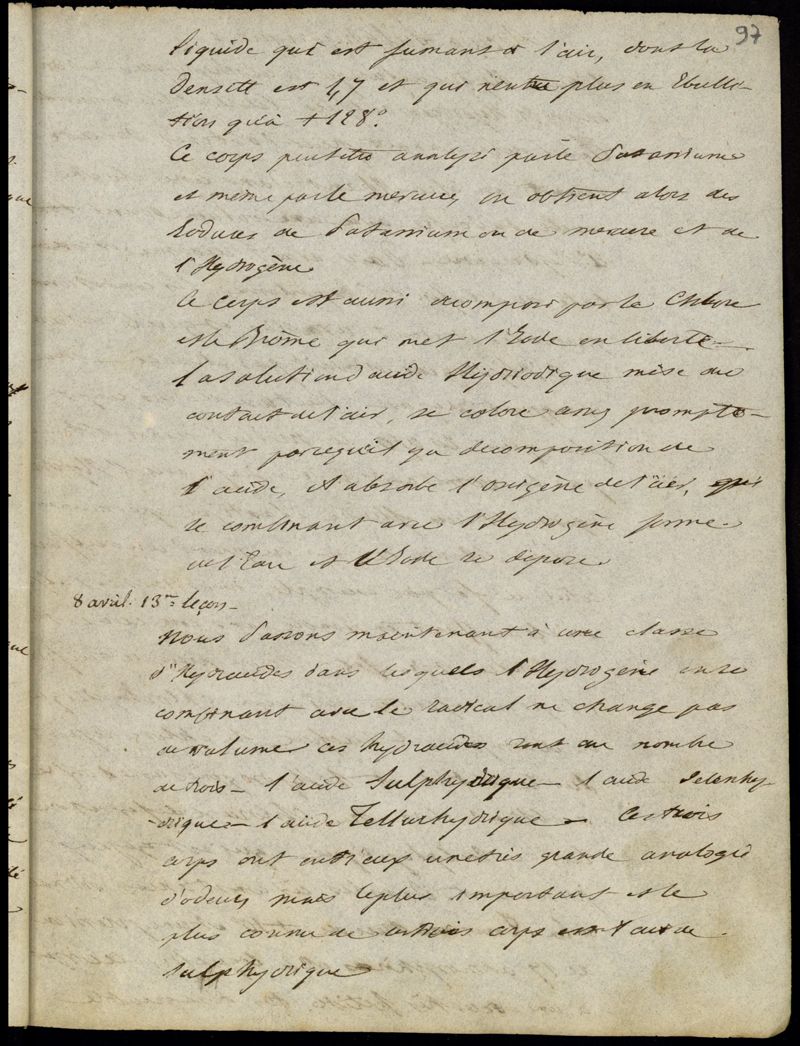 97
liquide qui est fumant à l'air, dont la
densité est 1,7 et qui n'entre plus en Ebulli-
tion qu'à + 128°.
Ce corps peut etre analysé par le Potassium
et même par le mercure, on obtient alors des
Iodures de Potassium ou de mercure et de
l'Hydrogène
Ce corps est aussi decomposé par le Chlore
et le Brôme qui met l'Iode en liberté -
La solution d'acide Hydriodique mise au
contact de l'air, se colore assez prompte-
ment parcequ'il y a decomposition de
l'acide, et absorbe l'oxigène de l'air,
se combinant avec l'Hydrogène forme
de l'Eau et l'Iode se depose.
8 avril. 13me leçon -
Nous Passons maintenant à une classe
d'Hydracides dans lesquels l'Hydrogène en se
combinant avec le radical ne change pas
de volume ces hydracides sont au nombre
de trois - l'acide Sulphydrique - l'acide Selenhy-
-drique - l'acide Tellurhydrique - Ces trois
corps ont entr'eux une très grande analogie
d'odeur, mais le plus important et le
plus connu de ces trois corps est l'acide
Sulphydrique